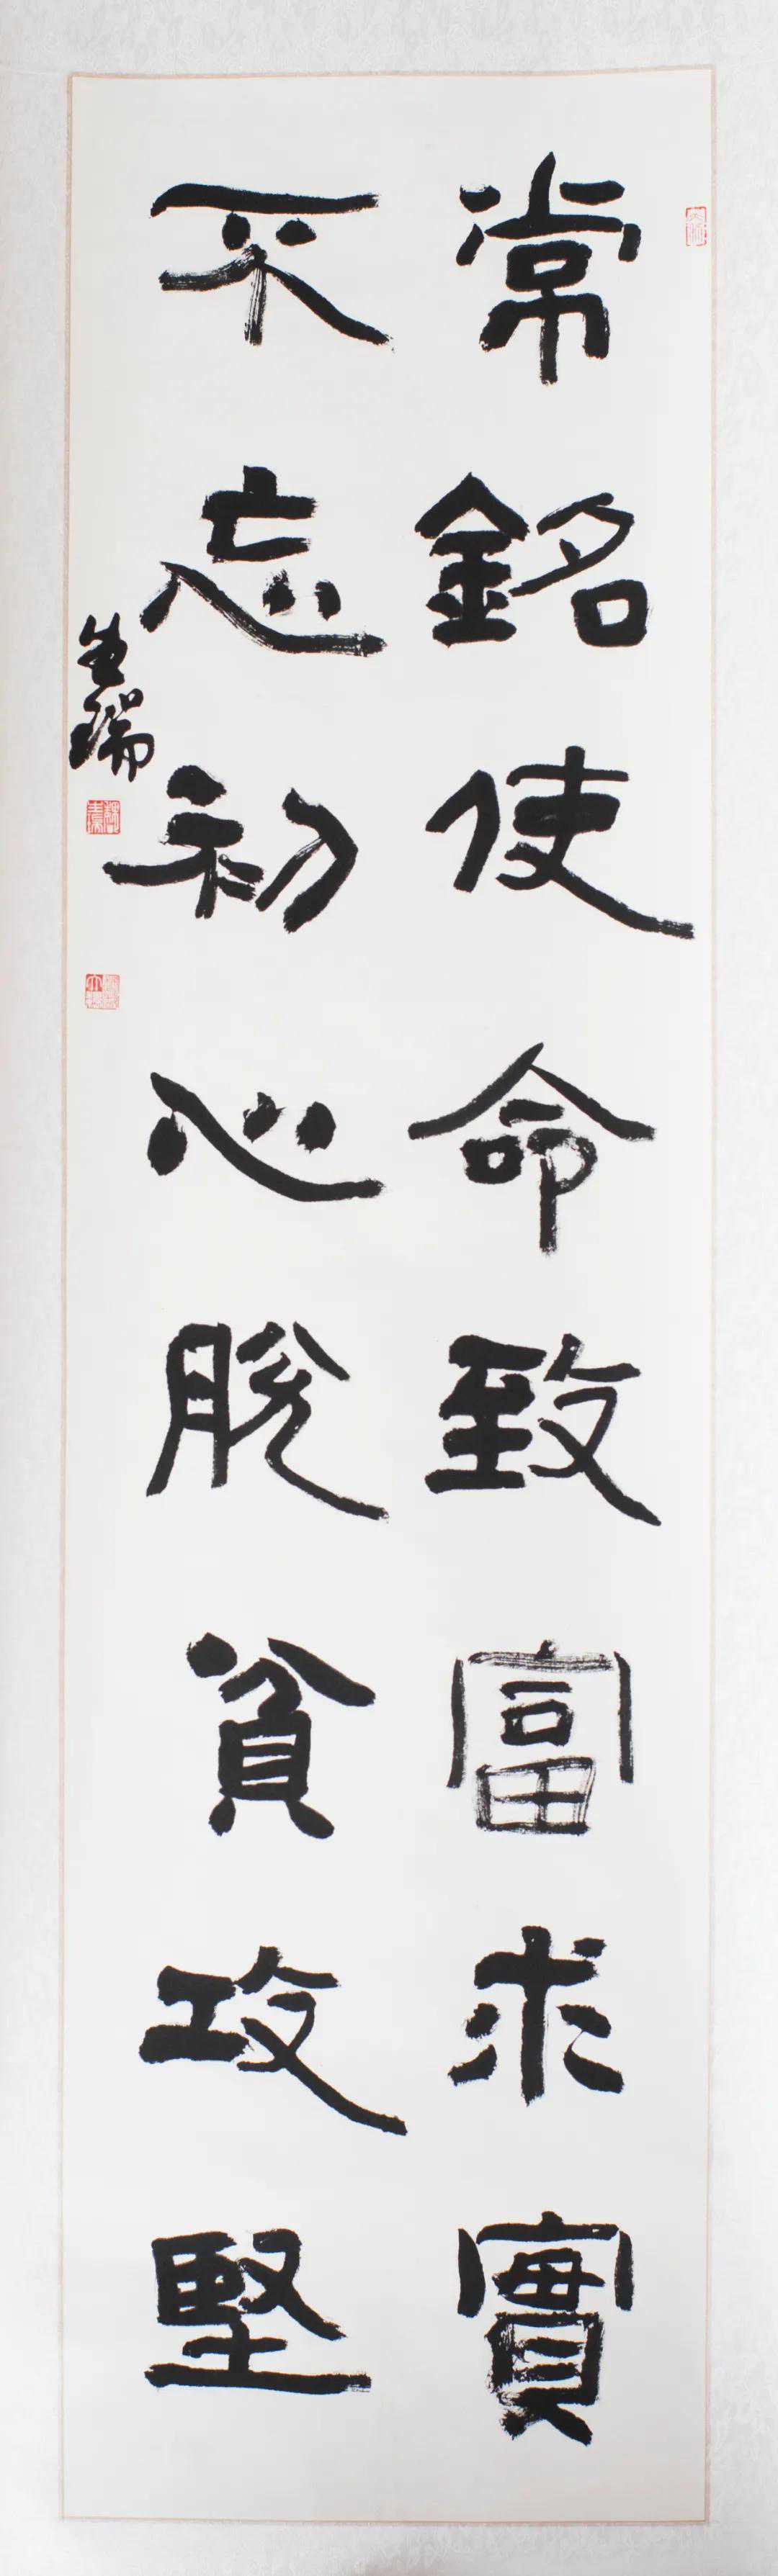 常銘使命致富求實
不忘初心脫貧攻堅
生瑞